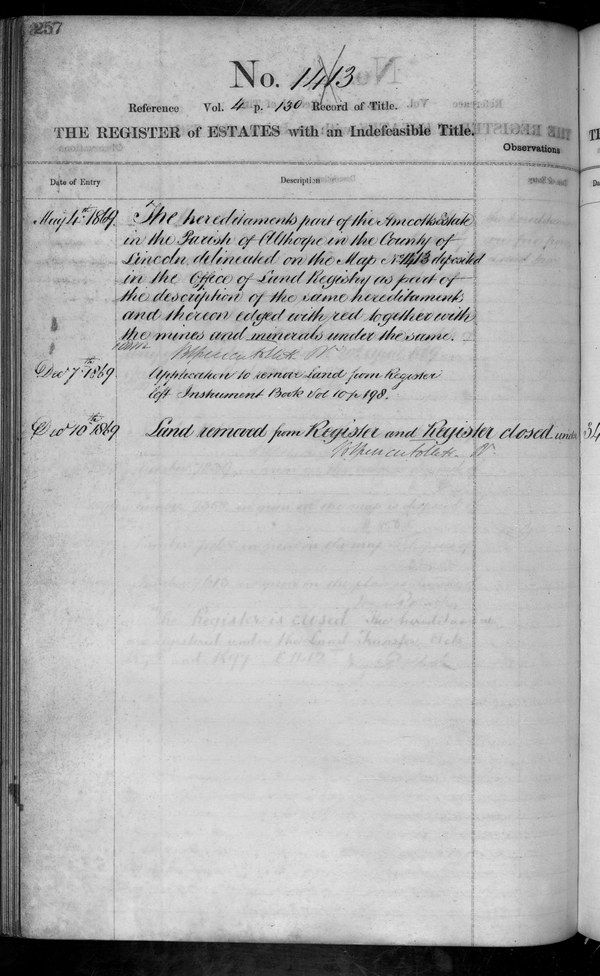 257
No. 1413
Reference Vol. 4 p. 130 Record of Title.
THE REGISTER of ESTATES with an Indefeasible Title.
Observations
Date of Entry
Description
May 4th 1869 The hereditaments part of the Amcotts Estate
in the Parish of Althorpe in the County of
Lincoln delineated on the Map No 1413 deposited
in the Office of Land Registry as part of
the description of the same hereditaments
and thereon edged with red together with
the mines and minerals under the same.
Decr 7th 1869 Application to remove Land from Register
left Instrument Book Vol 10 p 198.
Decr 10th 1869 Land removed from Register and Register closed under